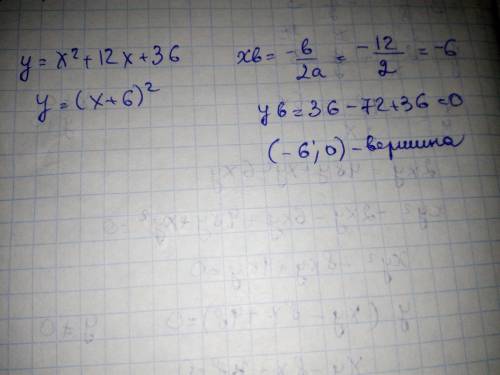 y = x² + 12x + 36
y = (x + 6)²
xв = -в/2a = -12/2 = -6
yв = 36 - 72 + 36 = 0
(-6; 0) - вершина